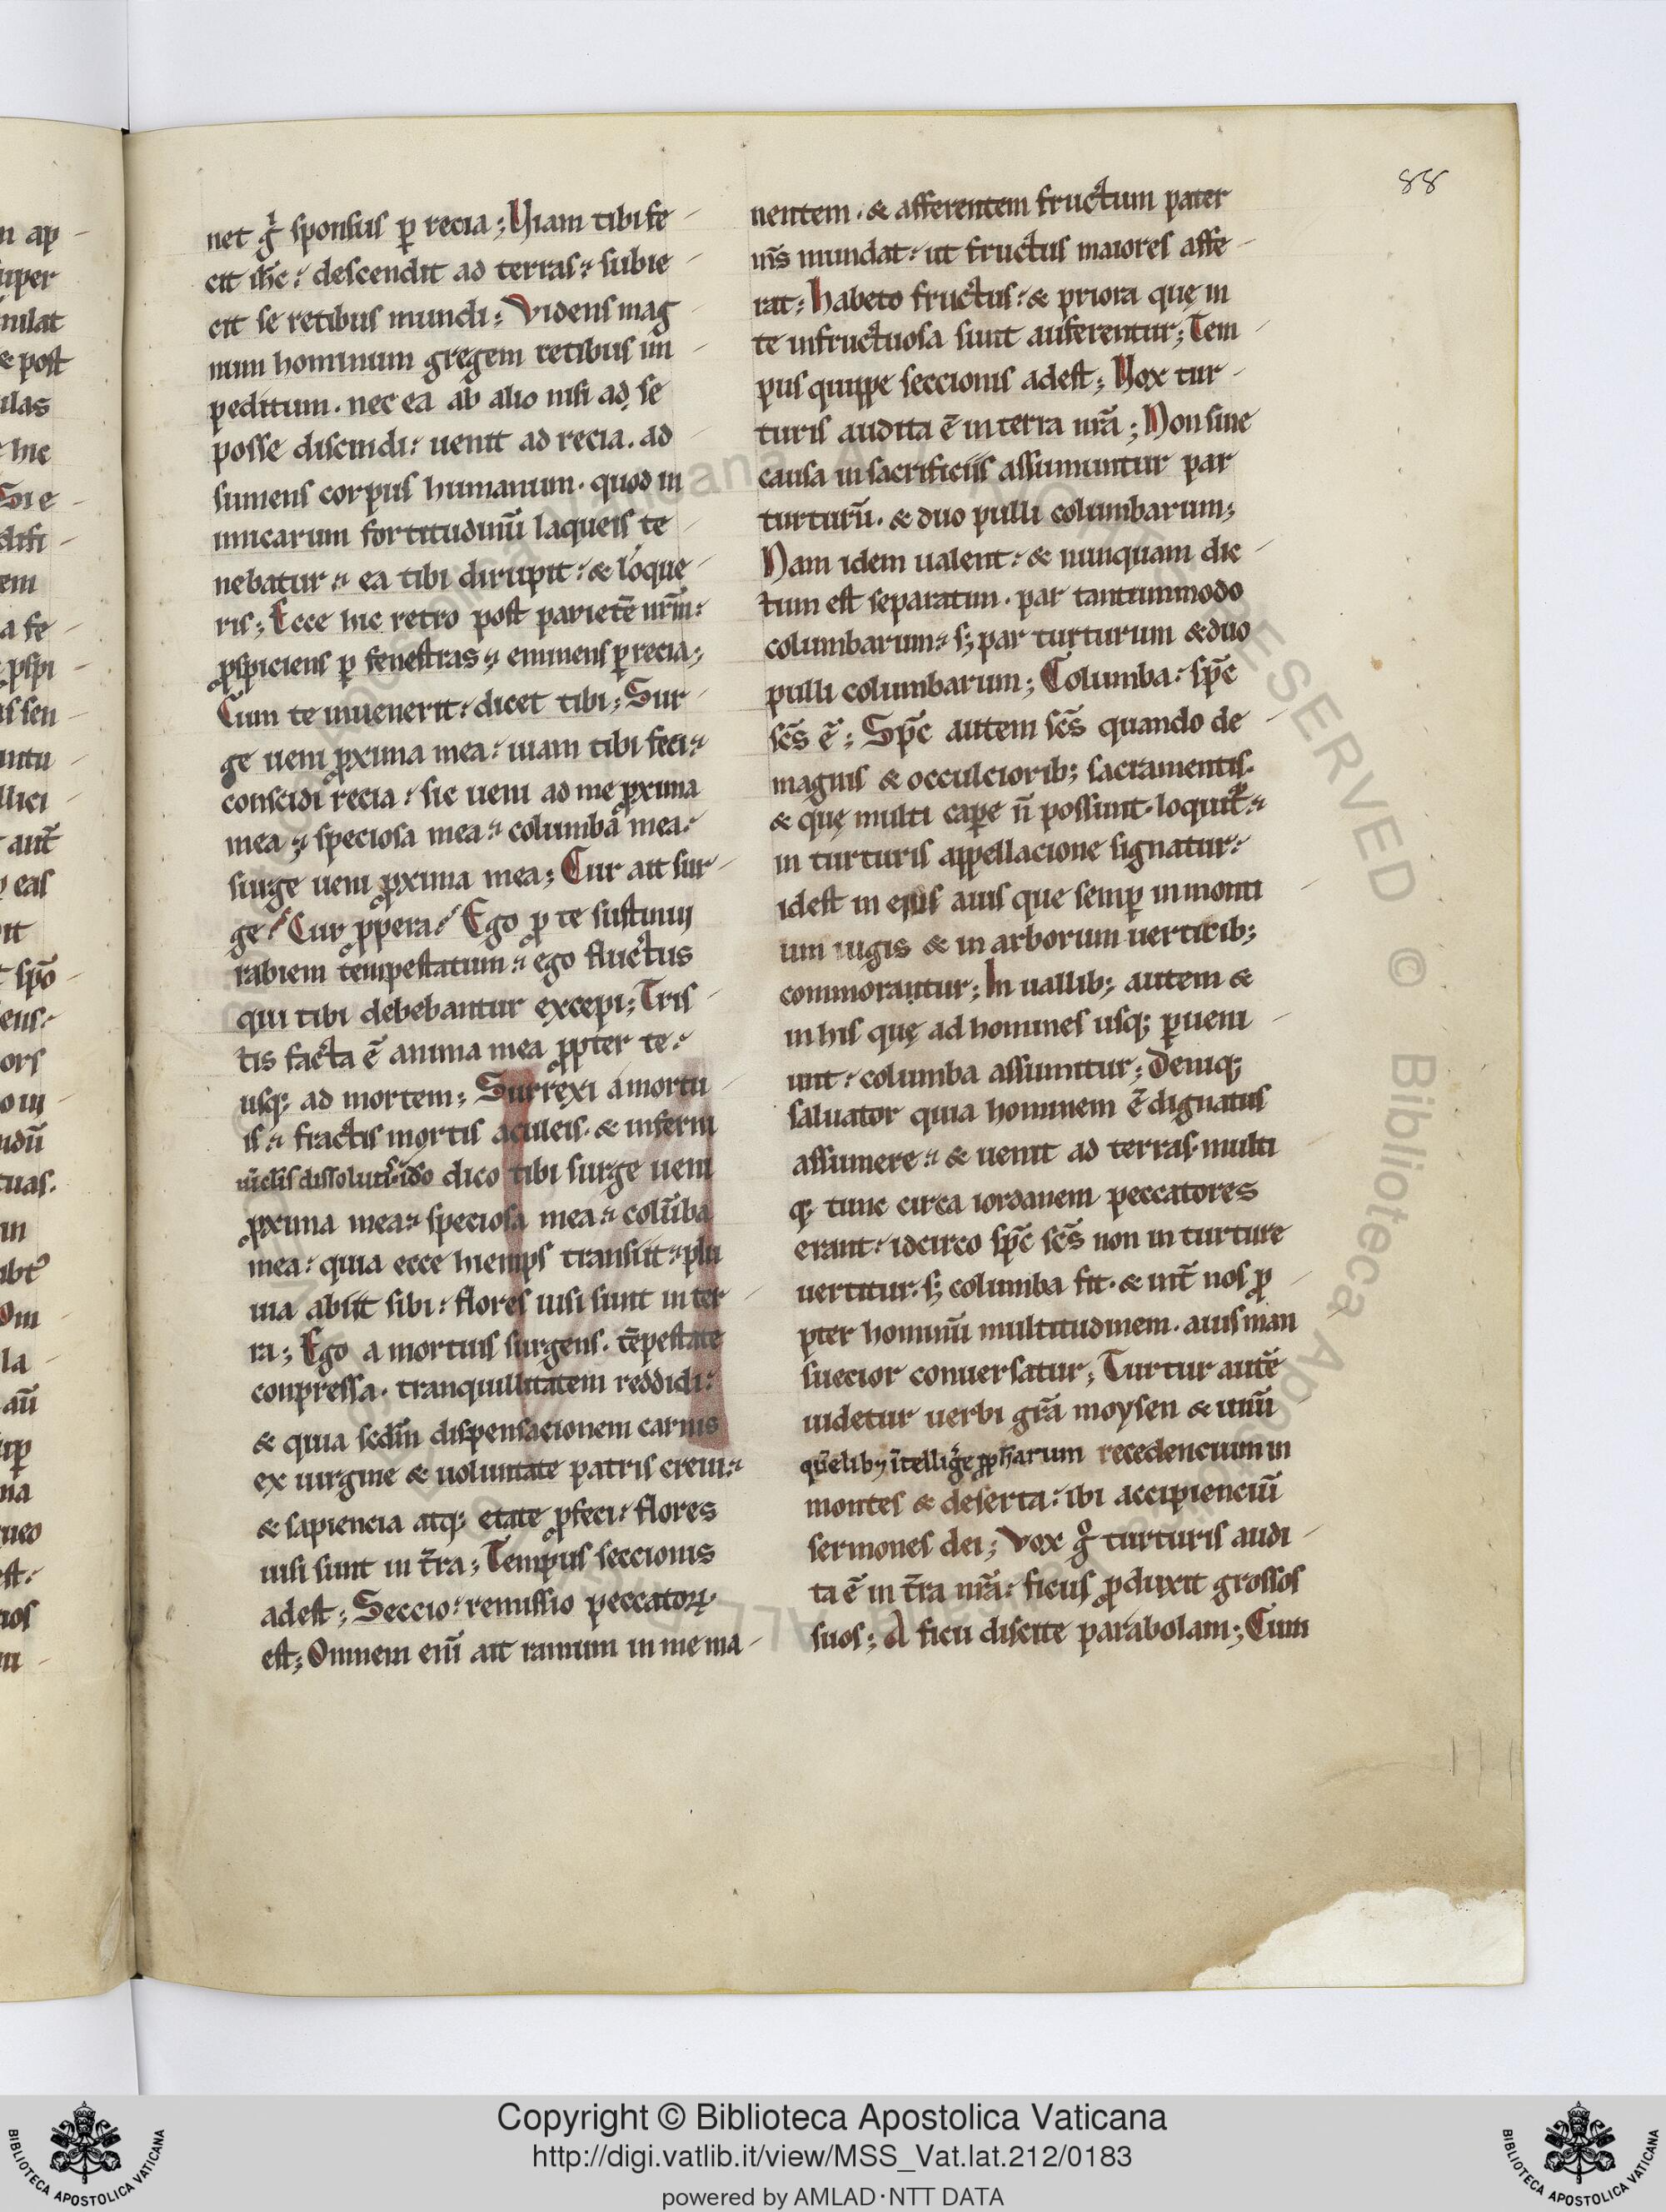 88
net gͥ sponsus ꝑ recia; Uiam tibi fe
cit ih̅c: descendit ad terras: subie
cit se retibus mundi: Videns mag
num hominum gregem retibus im
peditum. nec ea ab alio nisi ad se
posse discindi: uenit ad recia. ad
sumens corpus humanum. quod in
imicarum fortitudinū laqueis te
nebatur: ea tibi dirupit: & loque
ris; Ecce hic retro post parietē nr̄m:
ꝓspiciens ꝑ fenestras: eminens ꝑ recia;
Cum te inuenerit: dicet tibi: Sur
ge ueni ꝓxima mea: uiam tibi feci:
conscidi recia: sic ueni ad me ꝓxima
mea: speciosa mea: columba mea:
surge ueni ꝓxima mea; Cur ait sur
ge? Cur ꝓpera? Ego ꝓ te sustinui
rabiem tempestatum: ego fluctus
qui tibi debebantur excepi; Tris
tis facta ē anima mea ꝓpter te:
usq; ad mortem; Surrexi a mortu
is: fractis mortis aculeis. & inferni
uīclis dissolutis. ido dico tibi surge ueni
ꝓxima mea: speciosa mea: colūba
mea: quia ecce hiemps transiit: plu
uia abiit sibi: flores uisi sunt in ter
ra; Ego a mortuis surgens. tēpestate
conpressa. tranquillitatem reddidi:
& quia scdm̄ dispensacionem carnis
ex uirgine & uoluntate patris creui:
& sapiencia atq; etate ꝓfeci: flores
uisi sunt in t̄ra; Tempus seccionis
adest; Seccio: remissio peccatoꝝ
est; Omnem eni̅ ait ramum in me ma
nentem. & afferentem fructum pater
m̄s mundat: ut fructus maiores affe
rat; Habeto fructus: & priora quę in
te infructuosa sunt auferentur; Tem
pus quippe seccionis adest; Uox tur
turis audita ē in terra nr̄a; Non sine
causa in sacrificiis assumuntur par
turturū. & duo pulli columbarum;
Nam idem ualent: & nunquam dic
tum est separatim. par tantummodo
columbarum: s; par turturum & duo
pulli columbarum; Columba: sp̄c
sc̄s ē; Sp̄c autem sc̄s quando de
magnis & occulciorib; sacramentis.
& quę multi capere n̄ possunt. loquit̄:
in turturis appellacione signatur:
idest in eius auis que semꝑ in monti
um iugis & in arborum uerticib;
commorantur; In uallib; autem &
in his quę ad homines usq; ꝑueni
unt: columba assumitur; Deniq;
saluator quia hominem ē dignatus
assumere: & uenit ad terras. multi
q; tunc circa iordanem peccatores
erant: idcirco sp̄c sc̄s non in turture
uertitur. s; columba fit. & int̄ nos ꝓ
pter hominū multitudinem. auis man
suecior conuersatur; Turtur autē
uidetur uerbi gr̄a moysen & unū
quēlib; ītellige ꝓph̄arum recedencium in
montes & deserta: ibi accipienciū
sermones dei; Vox gͦ turturis audi
ta ē in t̄ra nr̄a: ficus ꝓduxit grossos
suos; A ficu discite parabolam; Cum
Copyright © Biblioteca Apostolica Vaticana
http://digi.vatlib.it/view/MSS_Vat.lat.212/0183
powered by AMLAD·NTT DATA